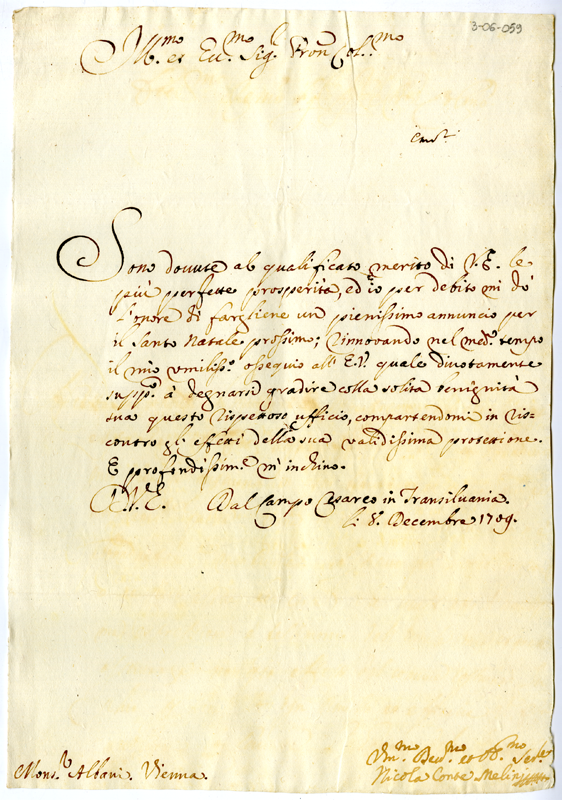 3-06-059
Ill.mo et Ecc.mo Sig.r Pron Col.mo
Sono douute al qualificato merito di V.E. le
più perfette prosperità, ed io per debito mi dò
l'onore di fargliene un pienissimo annuncio per
il Santo Natale prossimo; rinnovando nel med.o tempo
il mio umiliss.o ossequio all' E.V. quale diuotamente
supp.o à degnarsi gradire colla solita benignità
sua questo rispettoso ufficio, compartendomi in ris=
contro gl' effetti della sua validissima protettione.
E profondissim.e m' inchino.
A.V.E. Dal Campo Cesareo in Transiluania.
li 8. Decembre 1709.
Mons.r Albani. Vienna.
Um.mo Deu.mo et Obb.mo Ser.re
Nicola Conte